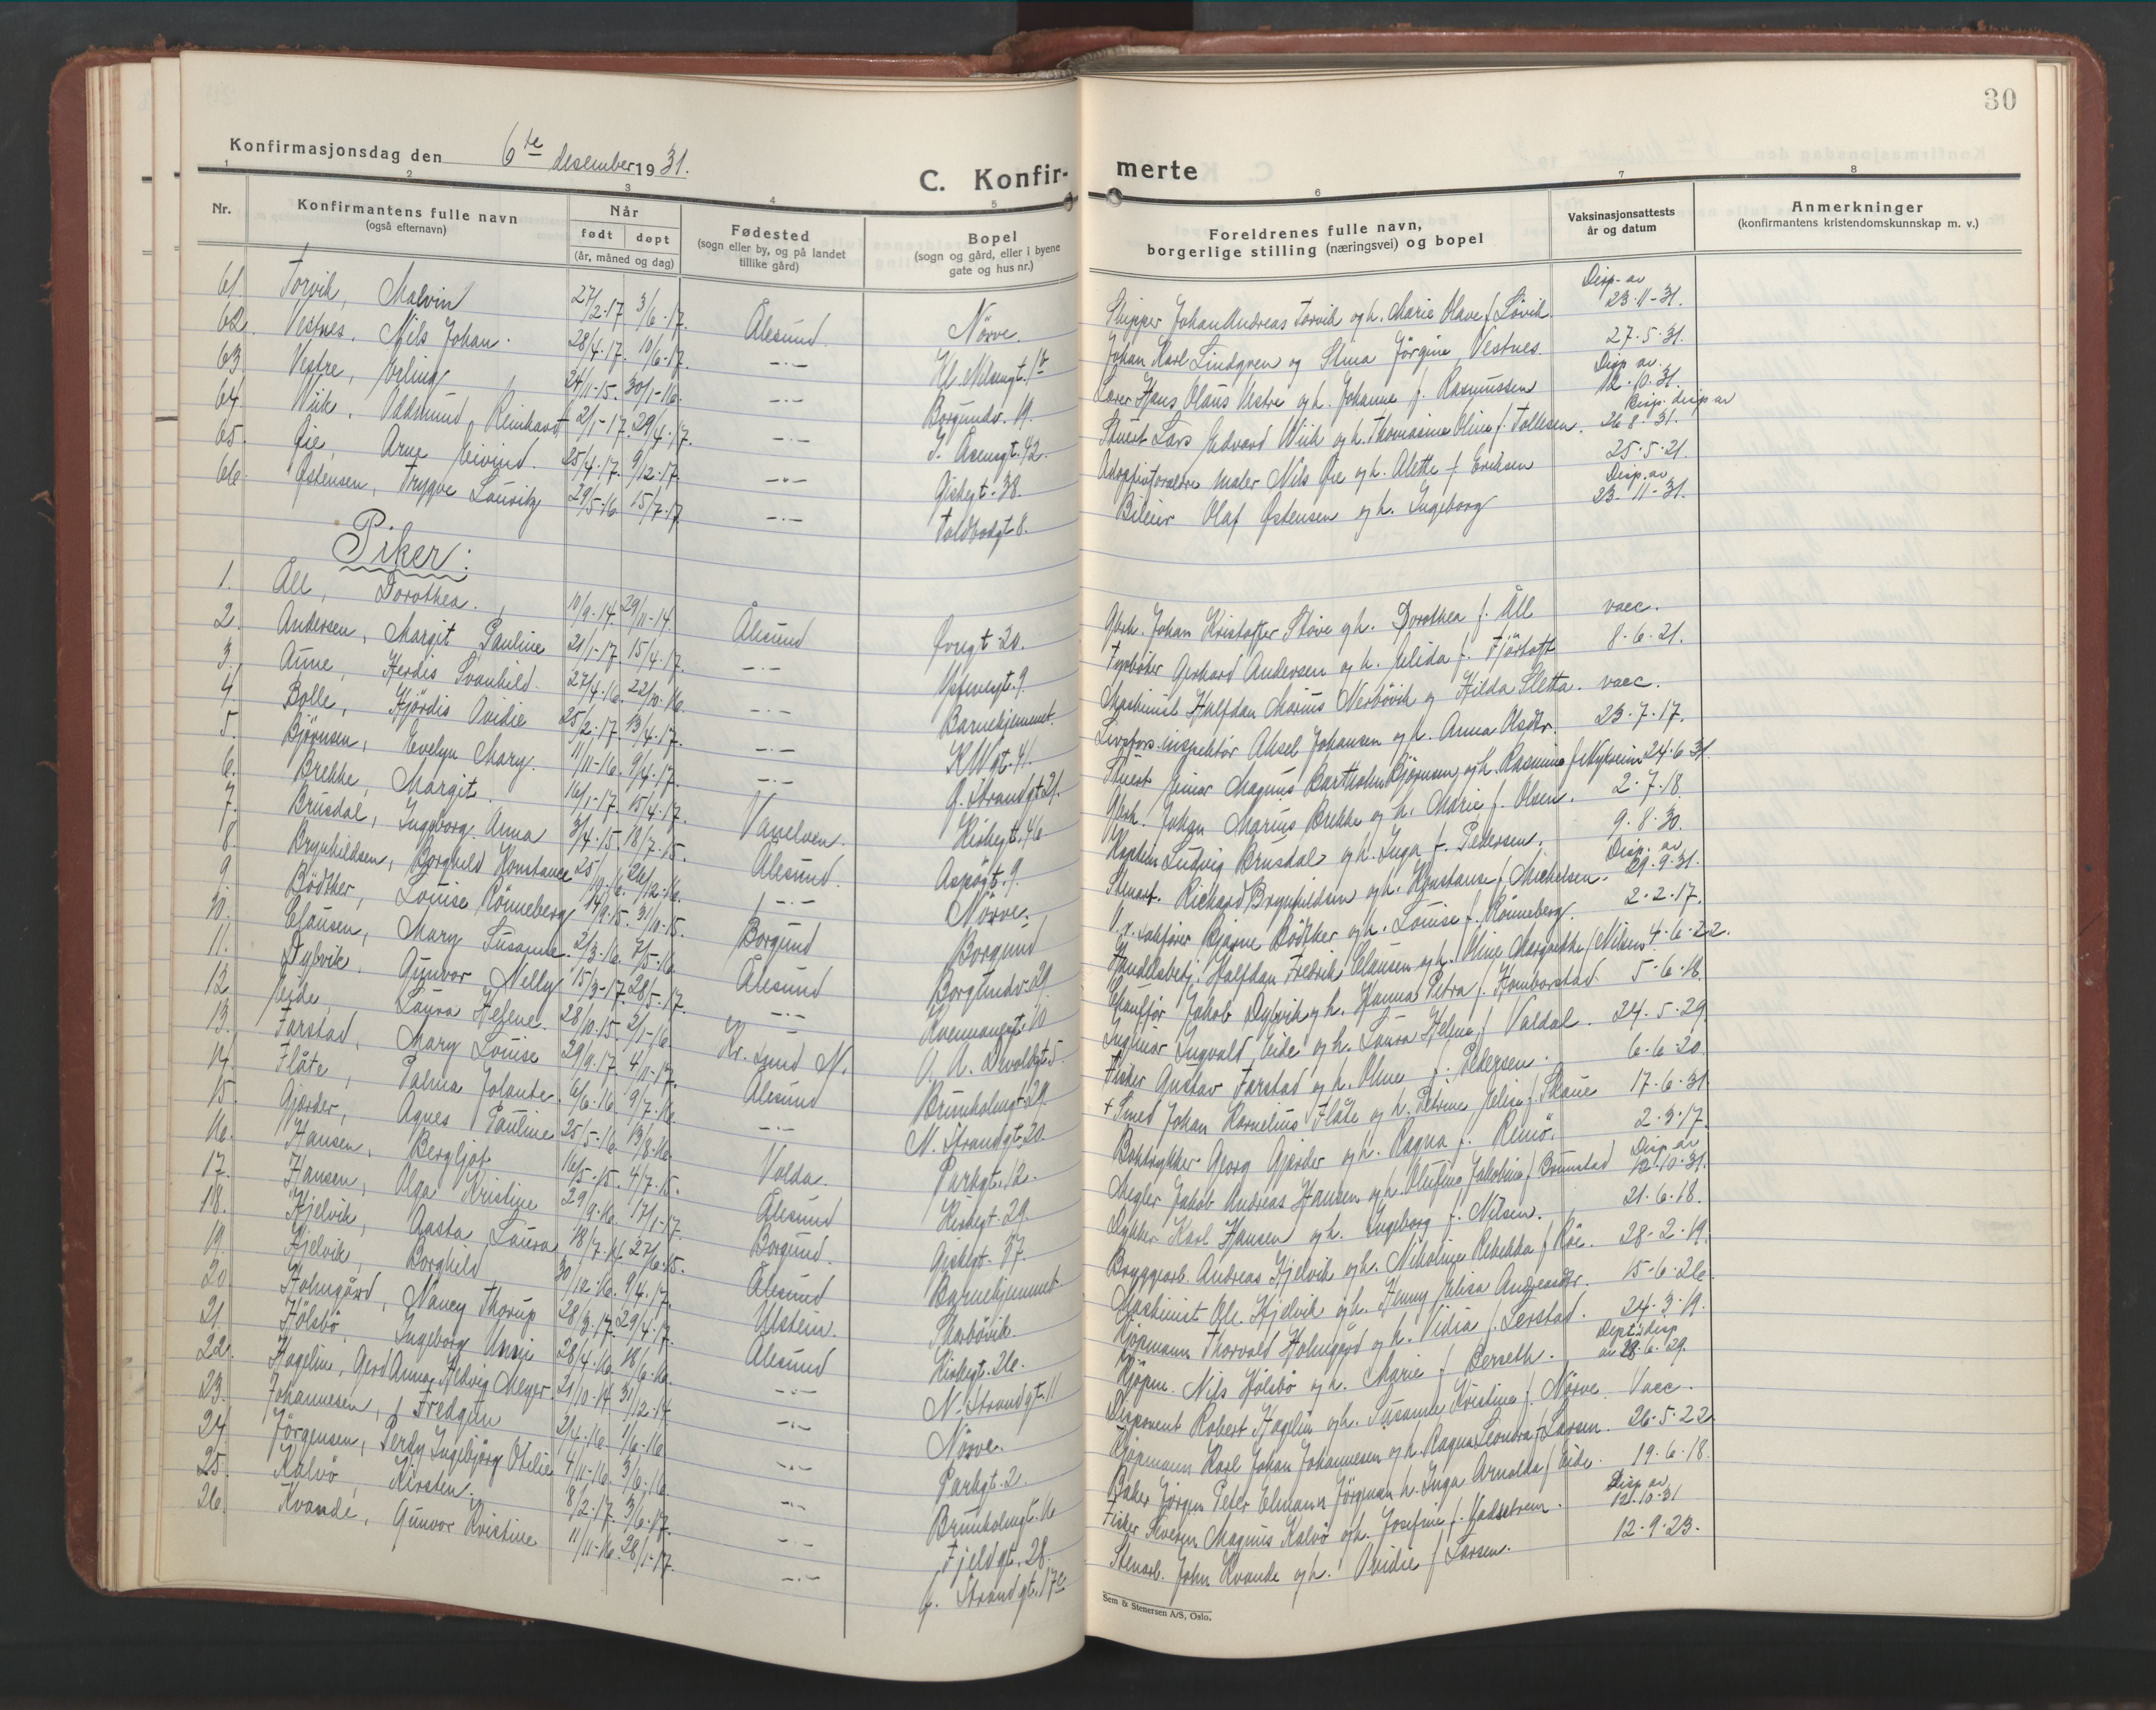 30
Konfirmasjonsdag den 6te desember 1931.
C. Konfir-
merte
1 2 3 4 5 6 7 8
Nr.
Konfirmantens fulle navn
(også efternavn)
Når
født døpt
(år, måned og dag)
Fødested
(sogn eller by, og på landet
tillike gård)
Bopel
(sogn og gård, eller i byene
gate og hus nr.)
Foreldrenes fulle navn,
borgerlige stilling (næringsvei) og bopel
Vaksinasjonsattests
år og datum
Anmerkninger
(konfirmantens kristendomskunnskap m. v.)
61. Torvik, Malvin 27/2-17 3/6-17. Ålesund Nörve. Skipper Johan Andreas Torvik og h. Marie Olave f. Lövik Disp. av 23-11-31.
62. Vestnes, Nils Johan. 28/4-17. 10/6-17. -"- Kl. Nilsengt. 1b Johan Karl Lindgren og Stina Jörgine Vestnes. 27-5-31.
63. Vestre, Erling 24/11-15. 30/1-16. -"- Borgundv. 19. Lærer Hans Olaus Vestre og h. Johanne f. Rasmussen Disp. av. 12-10-31.
64. Wiik, Oddmund Reinhardt 21/1-17. 29/4-17. -"- I. Aasensgt. 42. Stuert Lars Edvard Wiik og h. Thomasine Oline f. Tollesen. Bisp. disp av 26-8-31.
65. Øie, Arne Eivind. 25/4-17. 9/12-17. -"- Giskegt. 38. Adoptivforeldre maler Nils Øie og h. Alette f. Eriksen 25-5-21.
66. Østensen, Trygve Lauritz 29/5-16 15/7-17. -"- Toldbodgt 8. Bileier Olaf Østensen og h. Ingeborg Disp. av 23-11-31.
Piker:
1. Åll, Dorothea. 10/9-14. 29/11-14 Ålesund 20. Arb. Johan Kristoffer Støve og h. Dorothea f. Åll vacc.
2. Andersen, Margit Pauline 21/1-17. 15/4-17. -"- 9. Gerhard Andersen og h. Elida f. Fjörtoft 8-6-21.
3. Aune, Herdis Svanhild. 27/4-16. 22/10-16. -"- Barnehjemmet. Maskinist Halfdan Marius Nerbövik og Hilda Sletta. vacc.
4. Bolle, Hjördis Ovidie 25/2-17. 13/4-17. -"- KWgt. 41. Livsfors.inspektör Aksel Johansen og h. Anna Olsdtr. 23-7-17.
5. Björnsen, Evelyn Mary. 11/11-16. 9/4-17. -"- G. Strandgt 21. Stuert Einar Magnus Bartholm Björnsen og h. Rasmine f. 24-6-31.
6. Brekke, Margit. 16/1-17. 15/4-17. Vanelven. Kirkegt. 46 Arb. Johan Marius Brekke og h. Marie f. Olsen. 2-7-18.
7. Brusdal, Ingeborg Anna 3/4-15. 18/7-15. Ålesund. Aspögt. 9. Kaptein Ludvig Brusdal og h. Inga f. Pedersen. 9-8-30.
8. Brynhildsen, Borghild Konstance 25/11-16. 26/12-16. -"- Nörve. Stenarb. Richard Brynhildsen og h. Konstanse f. Michelsen. Disp. av 29-9-31.
9. Bödtker, Louise Rönneberg 14/9-15. 31/10-15. Borgund Borgund O.r. sakförer Bjarne Bödtker og h. Louise f. Rönneberg. 2-2-17.
10. Clausen, Mary Susanne. 2/3-16. 7/5-16. Ålesund Borgundv. 29 Handelsbetj. Halfdan Fredrik Clausen og h. Oline Margrethe f. Nilsen 4-6-22.
11. Dybvik, Gunvor Nelly 15/3-17. 28/5-17. -"- 10 Chaufför Jakob Dybvik og h. Hanna Petra f. Hornborstad. 5-6-18.
12. Eide, Laura Helene. 28/10-15. 2/1-16. Kr. Sund N. O. A. Devoldsgt 5. Ingvald Eide og h. Laura Helena f. Valdal. 24-5-29.
13. Farstad, Mary Louise 29/9-17. 4/11-17. Ålesund Brunholmgt 29. Fisker Gustav Farstad og h. Oline f. Pedersen. 6-6-20.
14. Flåte, Palma Jolante. 6/6-16. 9/7-16. -"- N. Strandgt. 20. + Smed Johan Kornelius Flåte og h. Petrine Elise f. Skaue 17-6-31
15. Gjærder, Agnes Pauline 25/5-16. 13/8-16. Volda. Parkgt. 12. Boktrykker Georg Gjærder og h. Ragna f. Remö. 2-3-17.
16. Hansen, Bergljot 16/5-15. 4/7-15. Ålesund Kirkegt. 29. Megler Jakob Andreas Hansen og h. Olufine Jakobine f. Brunstad Disp av 12-10-31.
17. Hansen, Olga Kristine 29/9-16. 17/1-17. Borgund. Giskegt. 37. Dykker Karl Hansen og h. Ingeborg f. Nilsen. 21-6-18.
18. Hjelvik, Aasta Laura 18/7-16. 27/6-15. Ålesund Barnehjemmet Bryggearb. Andreas Hjelvik og h. Nikoline Rebekka f. Röe. 28-2-19.
19. Hjelvik, Borghild 30/12-16. 9/4-17. Utstein. Skarbövik Maskinist Ole Hjelvik og h. Henny Elisa Andreasdtr. 15-6-26.
20. Holmgård, Nancy Thorup 28/3-17. 29/4-17. Ålesund Kirkegt. 26. Kjöpmann Thorvald Holmgård og h. Vidia f. Lerstad. 24-3-19.
21. Hölsbö, Ingeborg Unni 28/4-16. 18/6-16. -"- N. Strandgt. 11 Kjöpm. Nils Hölsbö og h. Marie f. Berseth. Dept. disp av 28-6-29.
22. Hagelin, Gerd Anna Hedvig Meyer. 21/10-14. 31/12-14 -"- Nörve. Disponent Robert Hagelin og h. Susanne Kristine f. Nörve. Vacc.
23. Johannesen, Fredgun 2/4-16. 1/6-16 -"- Parkgt. 2. Kjöpmann Karl Johan Johannesen og h. Ragna Leonora f. Larsen. 26-5-22
24. Jörgensen, Perdy Ingebjörg Otelie 4/11-16. 3/6-16 -"- Brunholmgt. 16 Baker Jörgen Peter Elmann Jörgensen h. Inga Arnolda f. Eide. 19-6-18.
25. Kalvö, Kirsten. 8/2-17. 3/6-17. -"- Fjeldgt. 28. Fisker Severin Magnus Kalvö og h. Josefine f. Vadstrem. Disp av 12-10-31
26. Kvande, Gunvor Kristine 11/11-16. 28/1-17. -"- G. Strandgt. 17c Stenarb. John Kvande og h. Ovidie f. Larsen. 12-9-23.
Sem & Stenersen A/S, Oslo.